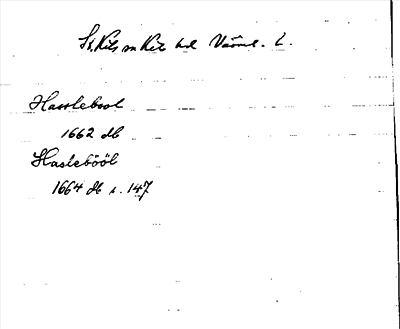 St. Kils sn Kils hd Värml. l.
Hasslebool
1662 db
Haslebööl
1664 db s. 147